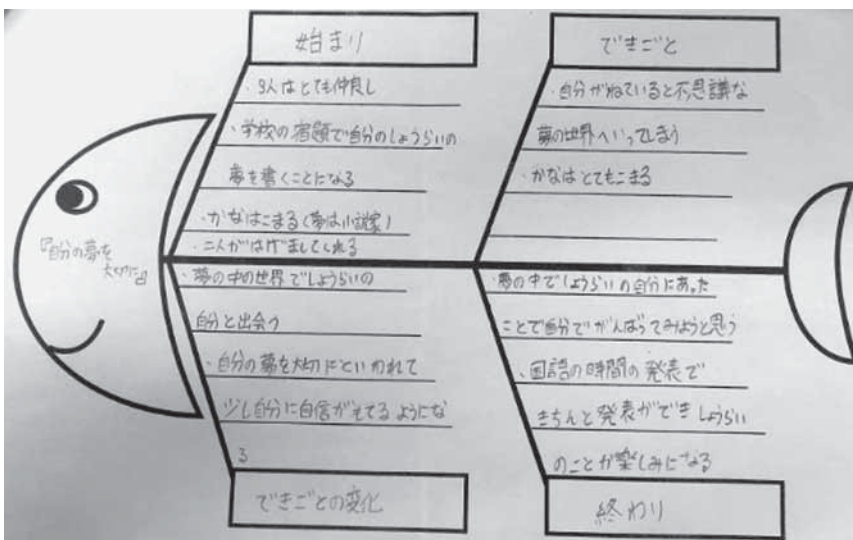 『自分の夢を
大切に』
始まり
・3人はとても仲良し
・学校の宿題で自分のしょうらいの
夢を書くことになる
・かなはこまる(夢は小説家)
・二人がはげましてくれる
できごと
・自分がねていると不思議な
夢の世界へいってしまう
・かなはとてもこまる
・夢の中の世界でしょうらいの
自分と出会う
・自分の夢を大切にといわれて
少し自分に自信がもてるようにな
る
できごとの変化
・夢の中でしょうらいの自分にあった
ことで自分でがんばってみようと思う
・国語の時間の発表で
きちんと発表ができしょうらい
のことが楽しみになる
終わり